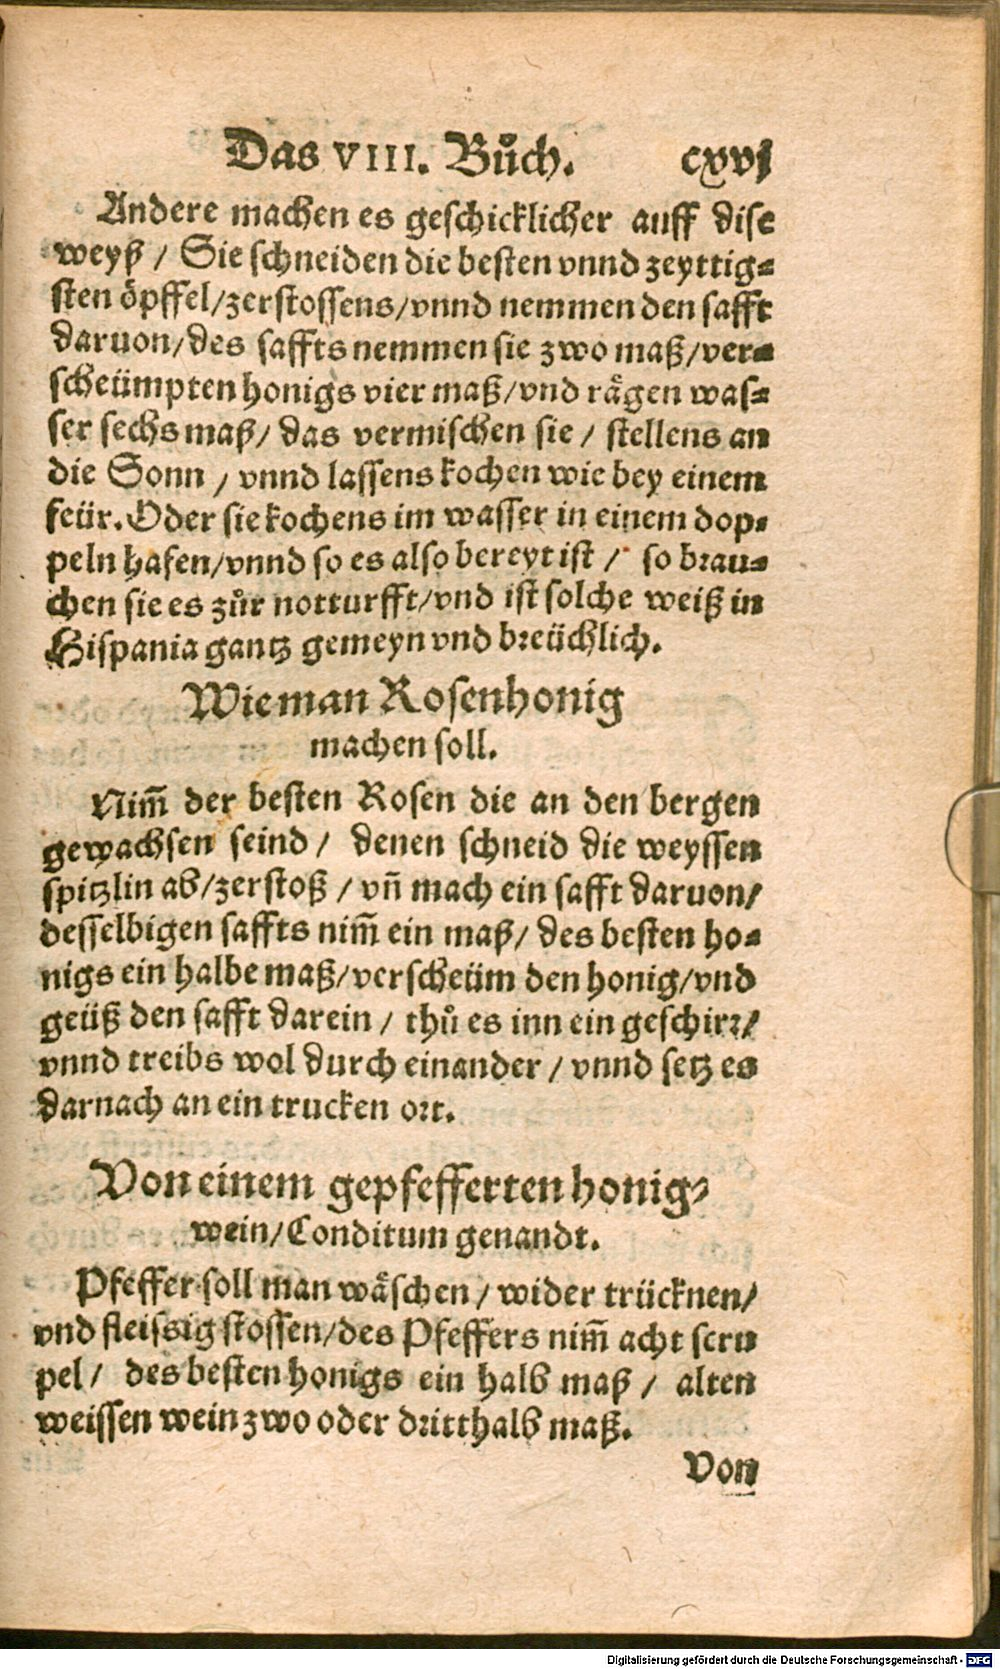 Das VIII. Bůch. cxvj
Andere machen es geschicklicher auff dise
weyß / Sie schneiden die besten vnnd zeyttig⸗
sten öpffel/zerstossens/vnnd nemmen den safft
daruon/des saffts nemmen sie zwo maß/ver⸗
scheümpten honigs vier maß/vnd rågen was⸗
ser sechs maß/ das vermischen sie / stellens an
die Sonn / vnnd lassens kochen wie bey einem
feür. Oder sie kochens im wasser in einem dop⸗
peln hafen/vnnd so es also bereyt ist / so brau⸗
chen sie es zůr notturfft/vnd ist solche weiß in
Hispania gantz gemeyn vnd breüchlich.
Wie man Rosenhonig
machen soll.
Nim̄ der besten Rosen die an den bergen
gewachsen seind / denen schneid die weyssen
spitzlin ab/zerstoß / vn̄ mach ein safft daruon/
desselbigen saffts nim̄ ein maß/ des besten ho⸗
nigs ein halbe maß/verscheüm den honig/vnd
geüß den safft darein / thů es inn ein geschirr/
vnnd treibs wol durch einander / vnnd setz es
darnach an ein trucken ort.
Von einem gepfefferten honig⸗
wein/Conditum genandt.
Pfeffer soll man wåschen / wider trücknen/
vnd fleissig stossen/des Pfeffers nim̄ acht scru
pel / des besten honigs ein halb maß / alten
weissen wein zwo oder dritthalb maß.
Von
Digitalisierung gefördert durch die Deutsche Forschungsgemeinschaft - DFG